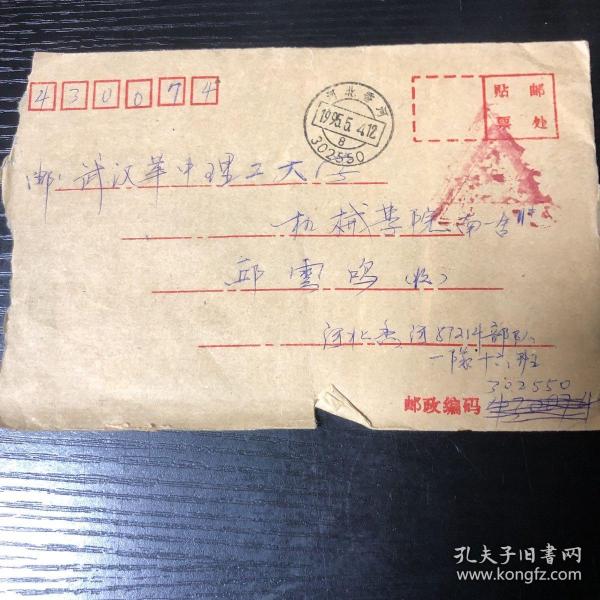 430074
河北香河
1995.5.4.12
8
302550
贴邮
票处
邮: 武汉华中理工大学
机械学院南一舍
邱雲鸣(收)
河北香河87214部队
一队十六班
302550
邮政编码
孔夫子旧书网
www.kongfz.com